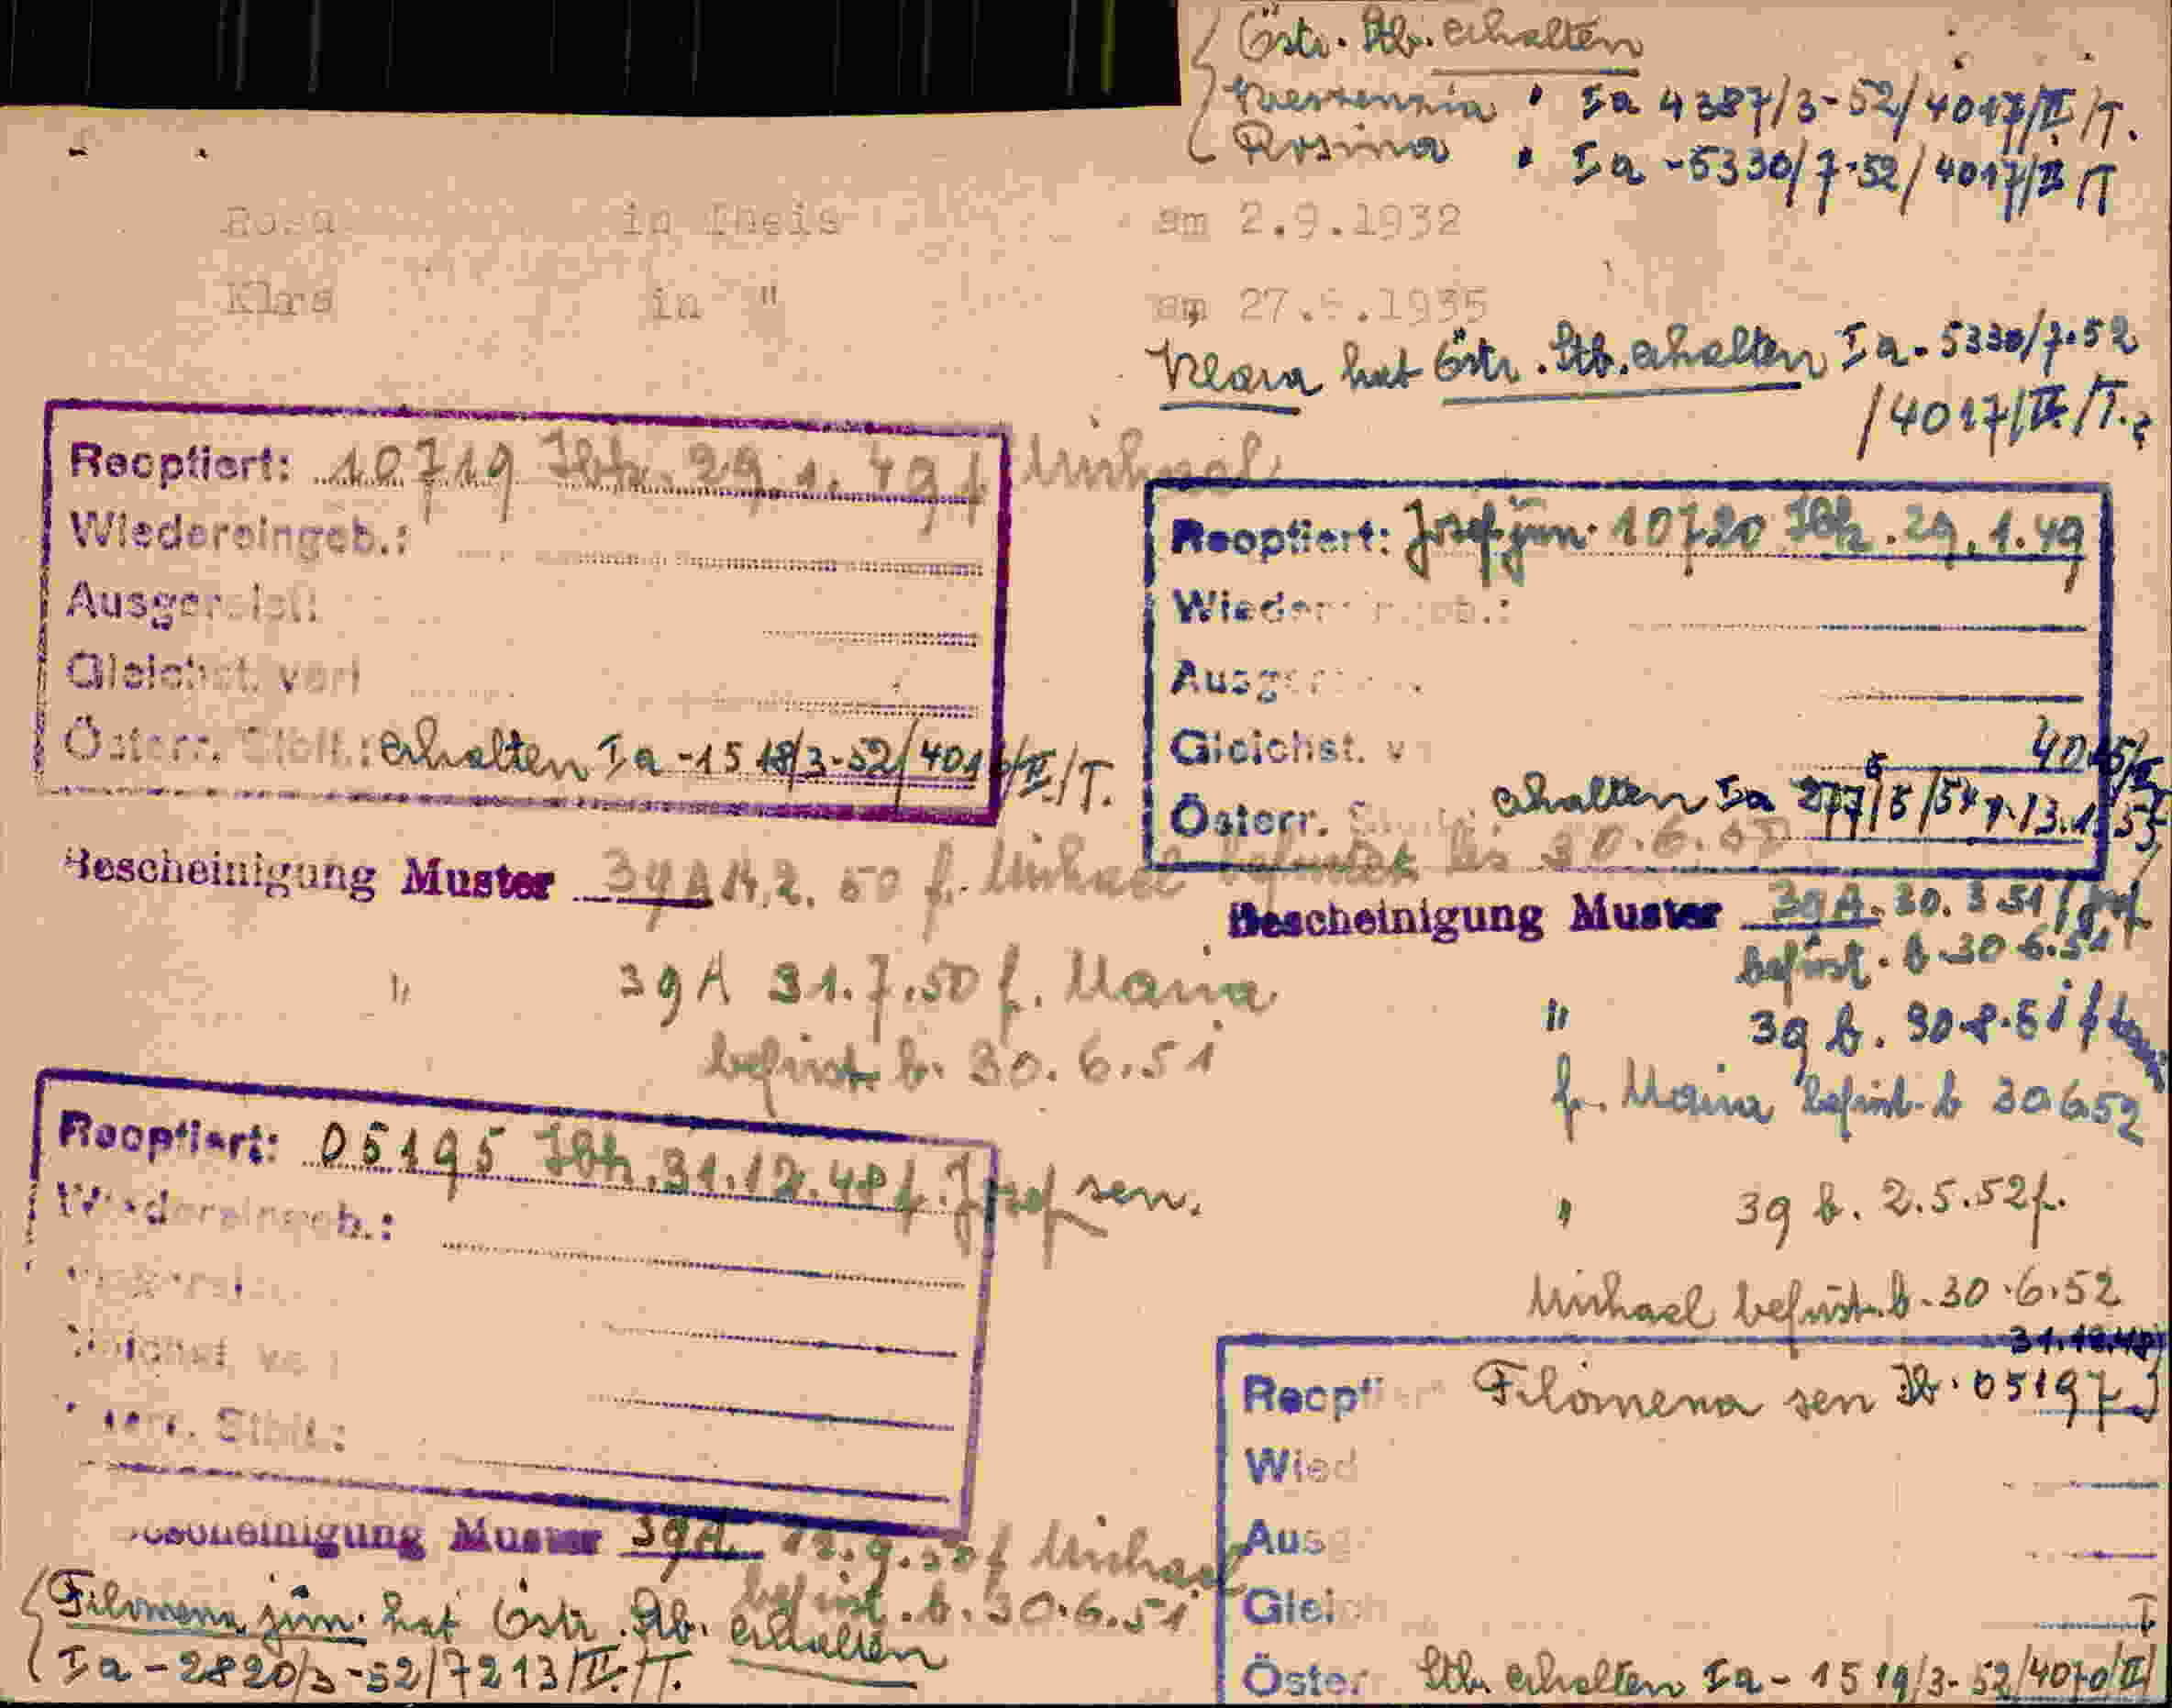 Östr. Stb. erhalten
Kreszenzia " Ia 4387/3-52/4017/II/T.
Rosina " Ia -5330/7-52/4017/II/T
Rosa in Theis am 2.9.1932
Klara in " am 27. .1935
Klara hat Östr. Stb. erhalten Ia. 5330/7.52
/4017/II./T.
Reoptiert: 10719 Ibk. 29.1.49 f Michael
Wiedereingeb.:
Ausgereist:
Gleichst. verl
Österr. Stblt.: erhalten Ia -1518/3-52/4016/II./T.
Bescheinigung Muster 39A 14.2.50 f. Michael befristet bis 30.6.50
" 39A 31.7.50 f. Maria
befrist. b. 30.6.51
Reoptiert: Josef jun. 10720 Ibk. 29.1.49
Wiedereingeb.:
Ausger
Gleichst. v
4015/II
Österr. erhalten Ia
Bescheinigung Muster 39A. 30.3.51 f Josef
befrist. b. 30.6.51
" 39 b. 30.8.51 f
f. Maria befrist. b 30.6.52
" 39 b. 2.5.52 f.
Michael befrist. b. 30.6.52
Reoptiert: 05195 Ibk. 31.12.48 f. Josef sen.
Wiedereingeb.:
Ausgereist
Gleichst. ve
Österr. Stblt.:
Bescheinigung Muster 39A 12.9.50 f Michael
befrist. b. 30.6.51
Filomena jun. hat Östr. Stb. erhalten
Ia -2820/3-52/7213/II./T.
31.12.48
Reoptiert Filomena sen Ib. 05197
Wied
Ausg
Gleich
Öster Stb. erhalten Ia - 1519/3-52/4070/II/